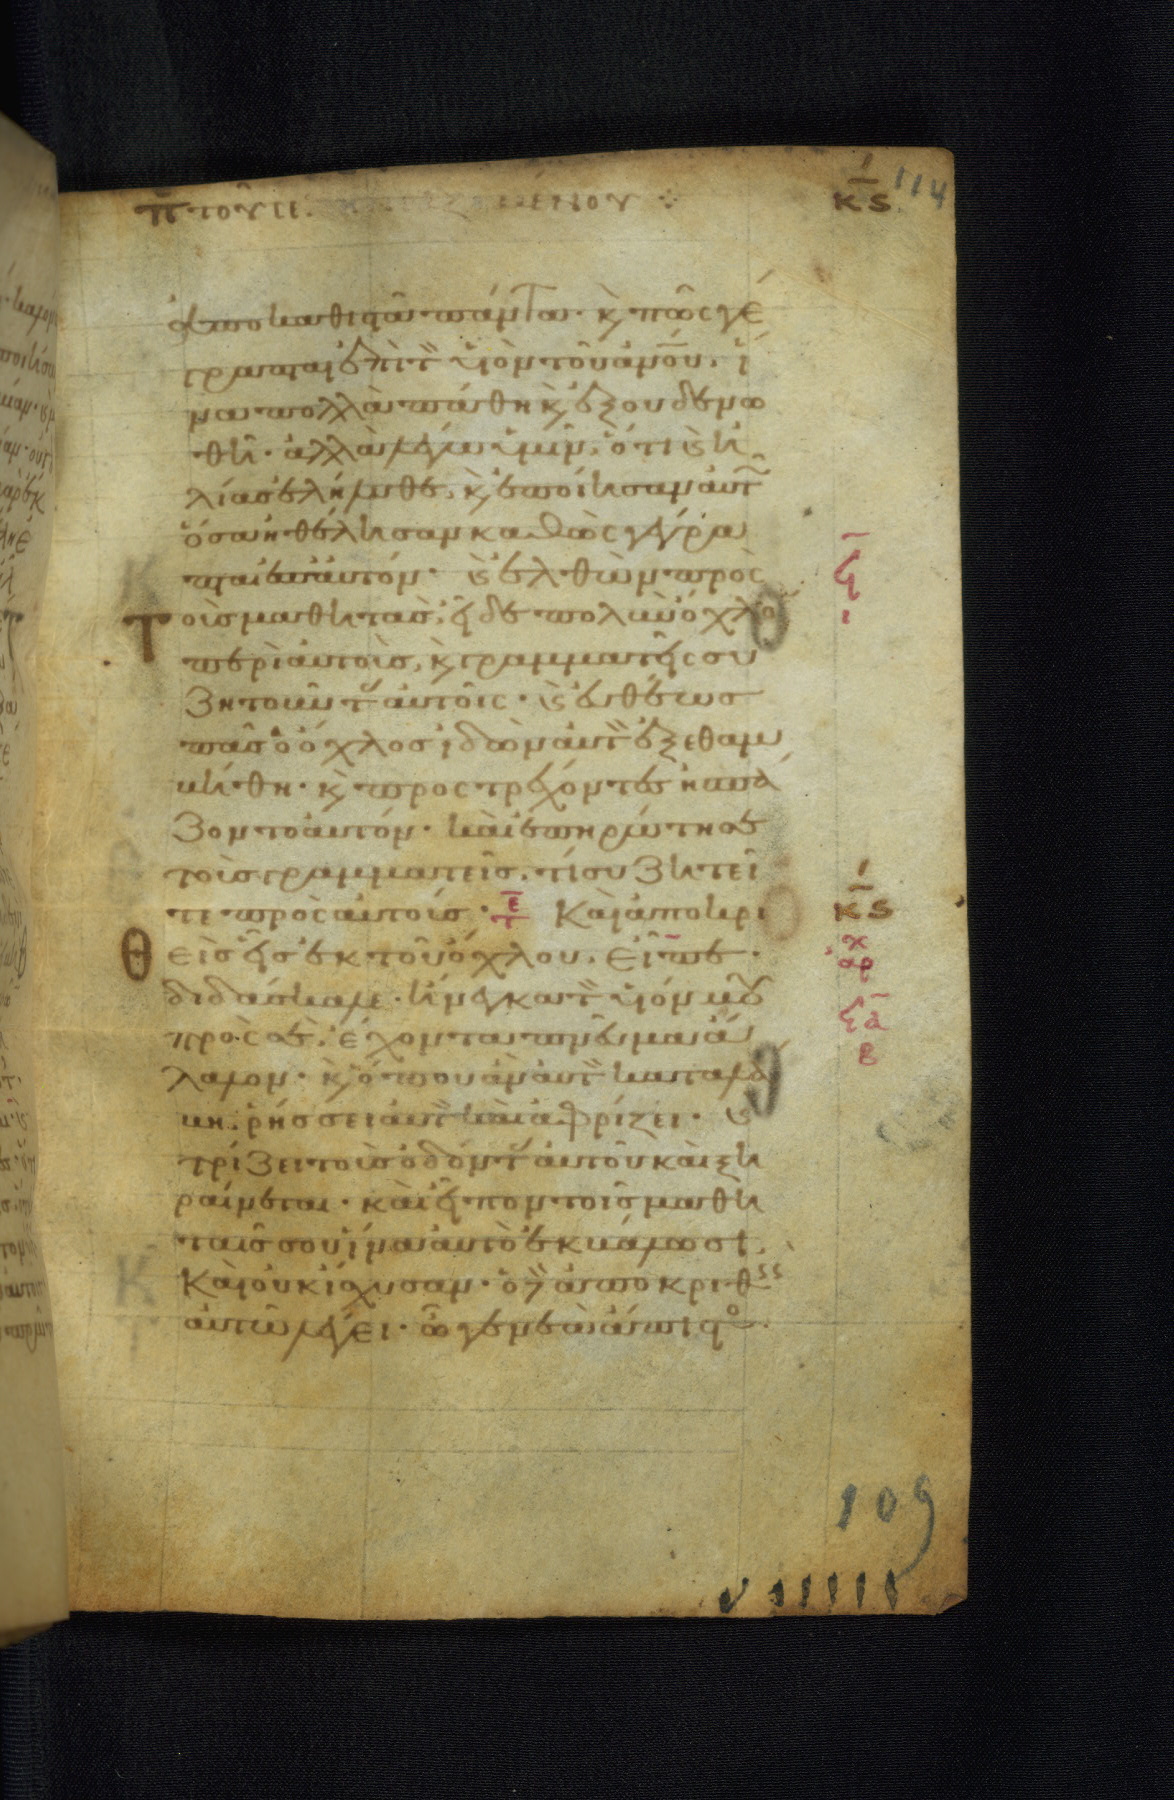 ἀποκαθιστᾶν πάντα· κ πῶς γέ
γραπται ἐπὶ τ υἱὸν τοῦ ἀνου. ἵ
να πολλὰ πάθη κ ἐξουδενω
θῆ· ἀλλὰ λέγω ὑμῖν, ὅτι κ ἠ
λίας ἐλήλυθε, κ ἐποίησαν αὐτ
ὅσα ἠθέλησαν καθὼς γέγρα
πται ἐπ αὐτόν· κ ἐλθὼν πρὸς
τοὺς μαθητὰς, εἶδε πολὺν ὄχλο
περὶ αὐτοὺς, κ γραμματεῖς συ
ζητοῦντ αὐτοῖς· κ εὐθέως
πᾶς ὁ ὄχλος ἰδὼν αὐτ ἐξεθαμ
βήθη· κ προστρέχοντες ἠσπά
ζοντο αὐτόν· καὶ ἐπηρώτησε
τοὺς γραμματεῖς. τί συζητεῖ
τε πρὸς αὐτούς· Καὶ ἀποκρι
θεὶς εἷς ἐκ τοῦ ὄχλου. εἶπε·
διδάσκαλε· ἤνεγκα τ υἱόν μου
πρὸς σὲ. ἔχοντα πνεῦμα ἄ
λαλον· κ ὅπου ἂν αὐτ καταλά
βη ρήσσει αὐτ καὶ ἀφρίζει· κ
τρίζει τοὺς ὀδόντ αὐτοῦ καὶ ξη
ραίνεται· καὶ εἶπον τοῖς μαθη
ταῖς σου ἵνα αὐτὸ ἐκβάλωσι,
Καὶ οὐκ ἴσχυσαν· ὁ δὲ ἀποκριθεὶς
αὐτῶ λέγει· ὦ γενεὰ ἄπιστο
κς
114
κς
109